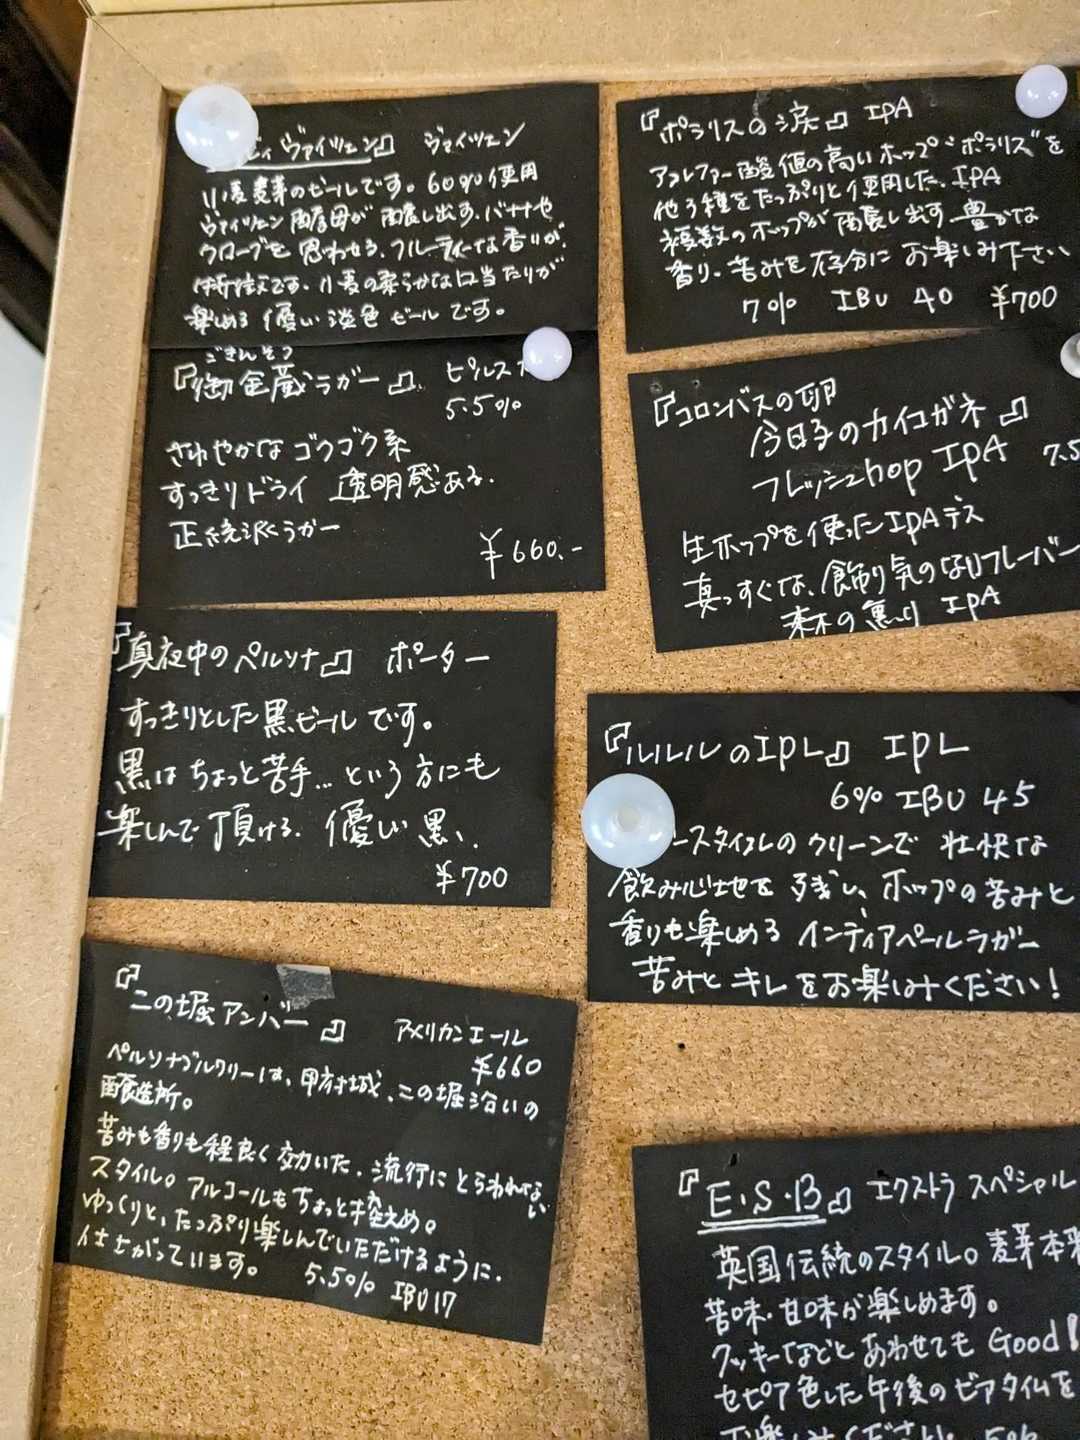 ヴァイツェン』 ヴァイツェン
小麦麦芽のビールです。60%使用
ヴァイツェン酵母が醸し出す、バナナや
クローブを思わせる、フルーティーな香りが
特徴です。小麦の柔らかな口当たりが
楽しめる優しい淡色ビールです。
ごきんぞう
『御金蔵ラガー』 ピルスナ
5.5%
さわやかなゴクゴク系
すっきりドライ 透明感ある、
正統派ラガー
¥660.-
『真夜中のペルソナ』 ポーター
すっきりとした黒ビールです。
黒はちょっと苦手…という方にも
楽しんで頂ける、優しい黒、
¥700
『二の堀アンバー』 アメリカンエール
¥660
ペルソナブルワリーは、甲府城、二の堀沿いの
醸造所。
苦みも香りも程良く効いた、流行にとらわれない
スタイル。アルコールもちょっと控えめ。
ゆっくりと、たっぷり楽しんでいただけるように、
仕上がっています。 5.5% IBU17
『ポラリスの涙』 IPA
アルファー酸値の高いホップ"ポラリス"を
他3種をたっぷりと使用した、IPA
複数のホップが醸し出す豊かな
香り、苦みを存分にお楽しみ下さい
7% IBU 40 ¥700
『コロンバスの卵
今日子のカイコガネ』
フレッシュhop IPA 7.5
生ホップを使ったIPAデス
真っすぐな、飾り気のないフレーバー
森の薫り IPA
『ルルルのIPL』 IPL
6% IBU 45
ースタイルのクリーンで壮快な
飲み心地を残し、ホップの苦みと
香りも楽しめるインディアペールラガー
苦みとキレをお楽しみください!
『E.S.B』 エクストラ スペシャル
英国伝統のスタイル。麦芽本来
苦味、甘味が楽しめます。
クッキーなどとあわせてもGood!
セピア色した午後のビアタイムを
お楽しみください。5%